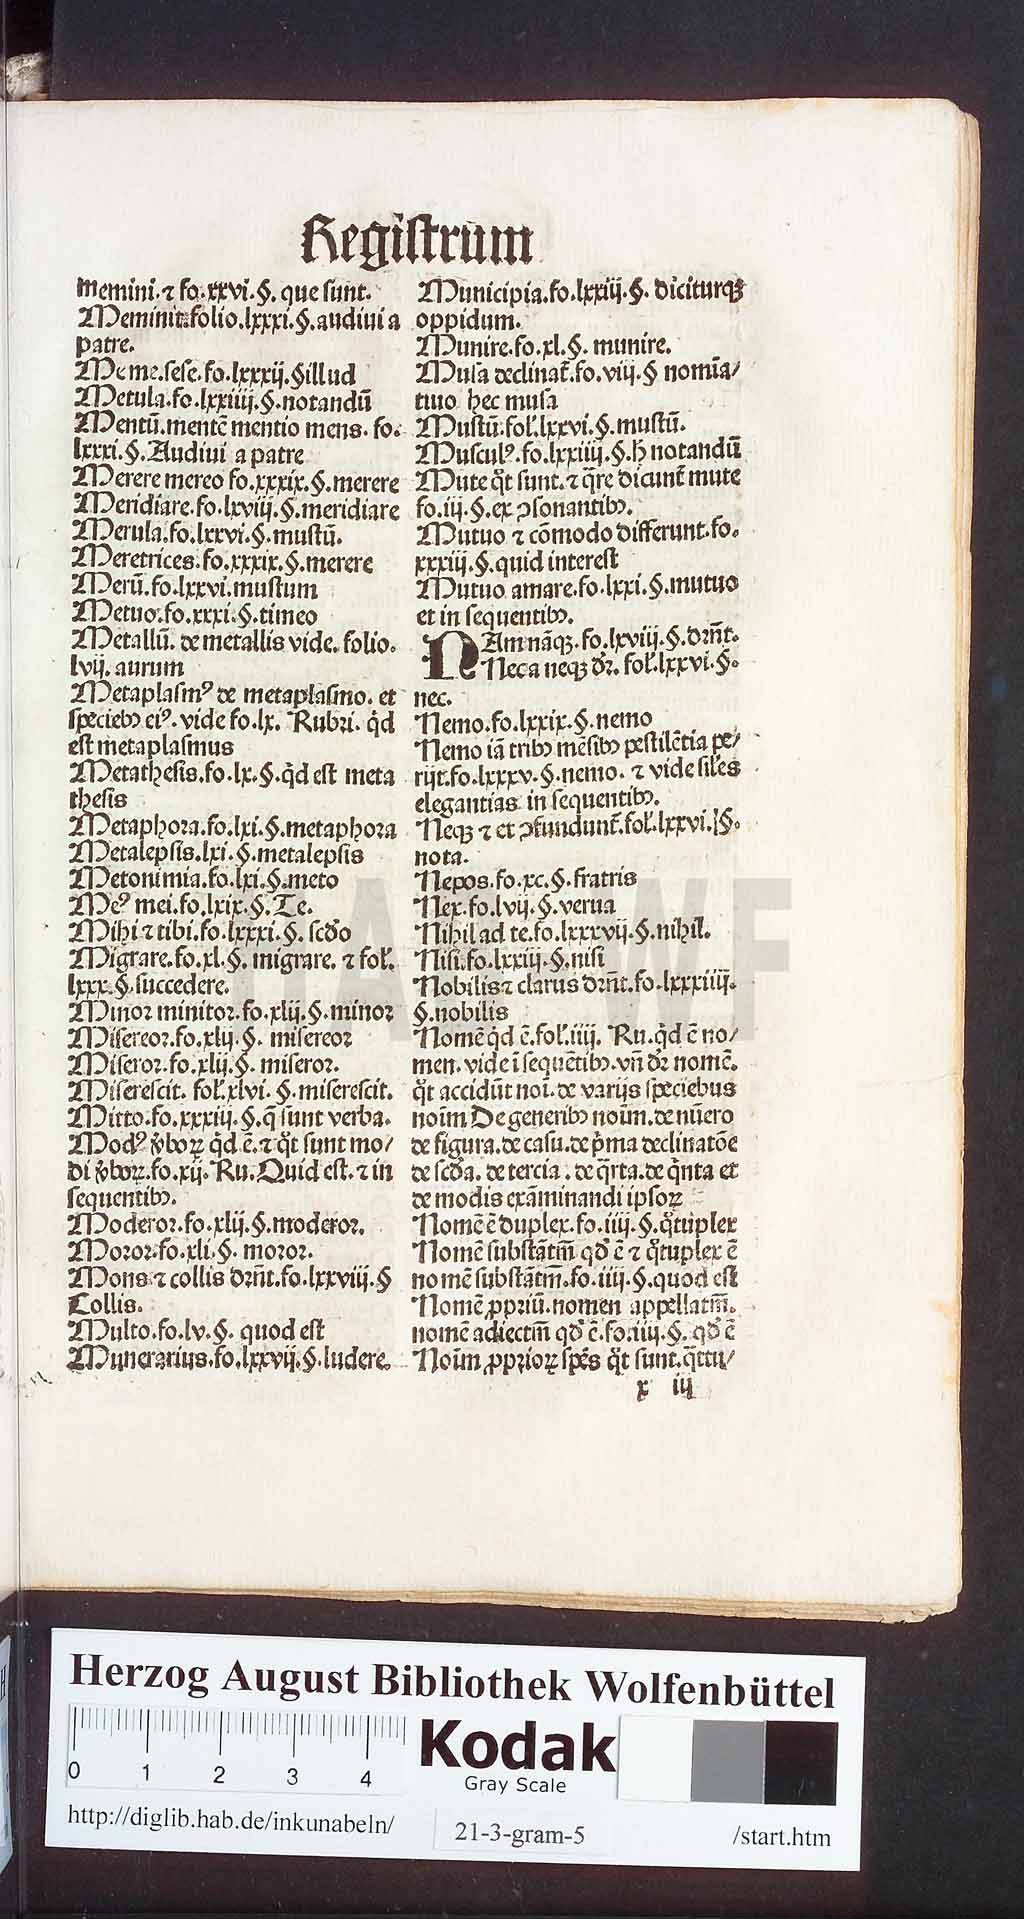 Regiſtrum
memini. ⁊ fo. xxvi. §. que ſunt.
Meminit. folio. lxxxi. §. audiui a
patre.
Me me. ſeſe. fo. lxxxij. § illud
Metula. fo. lxxiiij. §. notandū
Mentū. mentē mentio mens. fo.
lxxxi. §. Audiui a patre
Merere mereo fo. xxxix. §. merere
Meridiare. fo. lxviij. §. meridiare
Merula. fo. lxxvi. §. muſtū.
Meretrices. fo. xxxix. §. merere
Merū. fo. lxxvi. muſtum
Metuo. fo. xxxi. §. timeo
Metallū. de metallis vide. folio.
lvij. aurum
Metaplaſmꝰ de metaplaſmo. et
ſpeciebꝫ eiꝰ. vide fo. lx. Rubri. qd̓
eſt metaplaſmus
Metatheſis. fo. lx. §. qd̓ eſt meta
theſis
Metaphora. fo. lxi. §. metaphora
Metalepſis. lxi. §. metalepſis
Metonimia. fo. lxi. §. meto
Meꝰ mei. fo. lxix. §. Te.
Mihi ⁊ tibi. fo. lxxxi. §. ſcd̓o
Migrare. fo. xl. §. migrare. ⁊ fol̓.
lxxx. §. ſuccedere.
Minor minitor. fo. xlij. §. minor
Miſereor. fo. xlij. §. miſereor
Miſeror. fo. xlij. §. miſeror.
Miſereſcit. fol̓. xlvi. §. miſereſcit.
Mitto. fo. xxxiij. §. q̄ ſunt verba.
Modꝰ v̓boꝝ qd̓ ē. ⁊ q̄t ſunt mo/
di v̓boꝝ. fo. xij. Ru. Quid eſt. ⁊ in
ſequentibꝫ.
Moderor. fo. xlij. §. moderor.
Moror. fo. xli. §. moror.
Mons ⁊ collis drn̄t. fo. lxxviij. §
Collis.
Multo. fo. lv. §. quod eſt
Munerarius. fo. lxxvij. §. ludere.
Municipia. fo. lxxiij. §. diciturqꝫ
oppidum.
Munire. fo. xl. §. munire.
Muſa declinat̄. fo. viij. § nomīa/
tiuo hec muſa
Muſtū. fol̓. lxxvi. §. muſtū.
Muſculꝰ. fo. lxxiiij. §. h̓ notandū
Mute q̄t ſunt. ⁊ q̄re dicunt̄ mute
fo. iij. §. ex ꝯſonantibꝫ.
Mutuo ⁊ cōmodo differunt. fo.
xxxiij. §. quid intereſt
Mutuo amare. fo. lxxi. §. mutuo
et in ſequentibꝫ.
NAm nāqꝫ. fo. lxviij. §. drn̄t.
Neca neqꝫ dr̄. fol̓. lxxvi. §.
nec.
Nemo. fo. lxxix. §. nemo
Nemo iā tribꝫ mēſibꝫ peſtilētia pe/
rijt. fo. lxxxv. §. nemo. ⁊ vide ſil̓es
elegantias in ſequentibꝫ.
Neqꝫ ⁊ et ꝯfundunt̄. fol̓. lxxvi. §.
nota.
Nepos. fo. xc. §. fratris
Nex. fo. lvij. §. verua
Nihil ad te. fo. lxxxvij. §. nihil.
Niſi. fo. lxxiij. §. niſi
Nobilis ⁊ clarus drn̄t. fo. lxxxiiij.
§. nobilis
Nomē qd̓ ē. fol̓. iiij. Ru. qd̓ ē no/
men. vide ī ſequētibꝫ. vn̄ dr̄ nomē.
q̄t accidūt noī. de varijs ſpeciebus
noīm De generibꝫ noīm. de nūero
de figura. de caſu. de p̓ma declinatōe
de ſcd̓a. de tercia. de q̄rta. de q̓nta et
de modis exāminandi ipſoꝝ
Nomē ē duplex. fo. iiij. §. q̄tuplex
Nomē ſubſtātiū qd̓ ē ⁊ q̄tuplex ē
nomē ſubſtātm̄. fo. iiij. §. quod eſt
Nomē ꝓpriū. nomen appellatm̄.
nomē adiectm̄ qd̓ ē. fo. iiij. §. qd̓ ē
Noīm ꝓprioꝝ ſpēs q̄t ſunt. q̄ttu/
x iij
Herzog August Bibliothek Wolfenbüttel
0 1 2 3 4
Kodak
Gray Scale
http://diglib.hab.de/inkunabeln/
21-3-gram-5
/start.htm
HAB WF